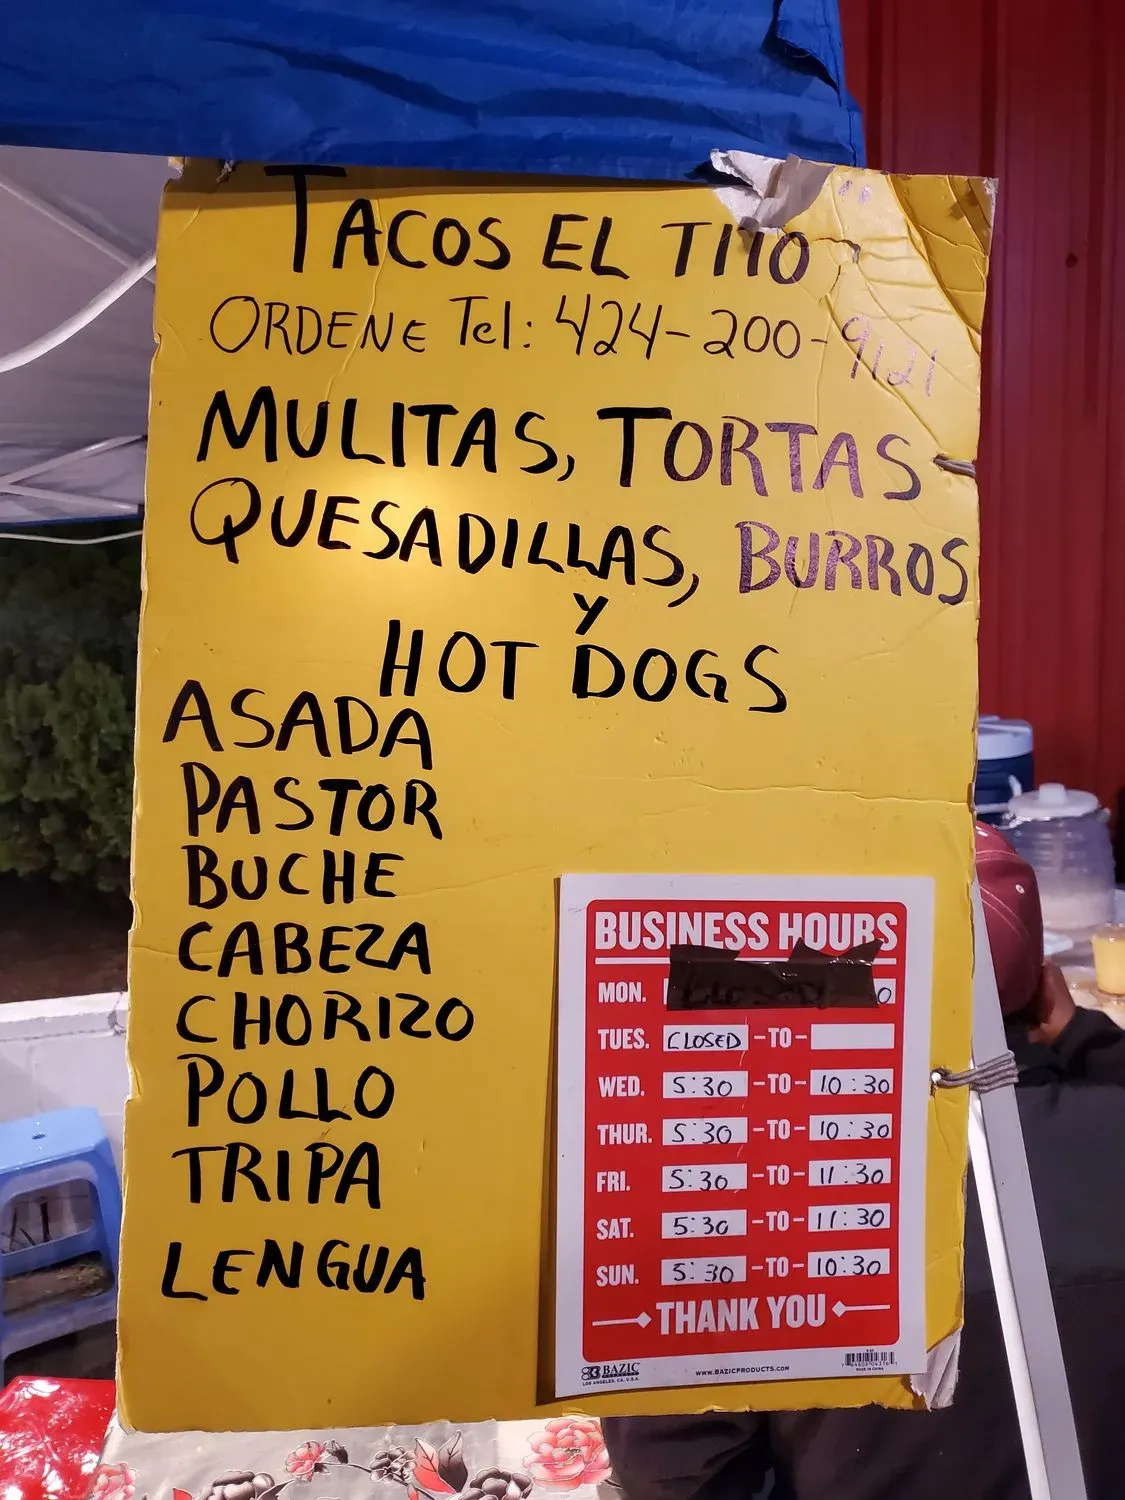 TACOS EL TITO
ORDENE Tel: 424-200-9121
MULITAS, TORTAS
QUESADILLAS, BURROS
Y
HOT DOGS
ASADA
PASTOR
BUCHE
CABEZA
CHORIZO
POLLO
TRIPA
LENGUA
BUSINESS HOURS
MON. CLOSED 0
TUES. CLOSED -TO-
WED. 5:30 -TO- 10:30
THUR. 5:30 -TO- 10:30
FRI. 5:30 -TO- 11:30
SAT. 5:30 -TO- 11:30
SUN. 5:30 -TO- 10:30
THANK YOU
BAZIC
PRODUCTS
LOS ANGELES, CA, U.S.A.
WWW.BAZICPRODUCTS.COM
MADE IN CHINA